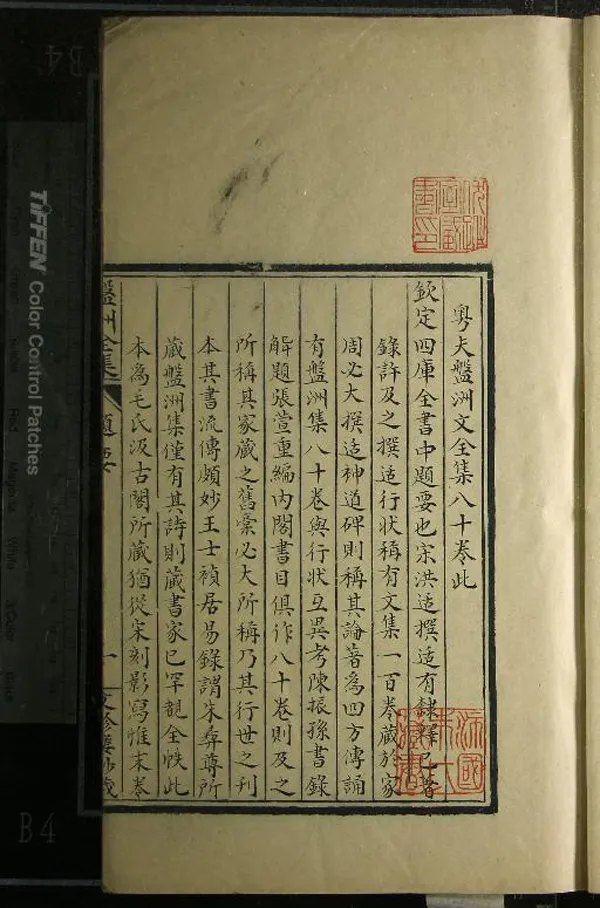 粤夫盤洲文全集八十卷此
欽定四庫全書中題要也宋洪适撰适有隸釋已著
錄許及之撰适行狀稱有文集一百卷藏於家
周必大撰适神道碑則稱其論著為四方傳誦
有盤洲集八十卷與行狀互異考陳振孫書錄
解題張萱重編內閣書目俱作八十卷則及之
所稱其家藏之舊槀必大所稱乃其行世之刊
本其書流傳頗妙王士禎居易錄謂朱彝尊所
藏盤洲集僅有其詩則藏書家已罕覩全帙此
本為毛氏汲古閣所藏猶從宋刻影寫惟末卷
盤洲全集
題要
一
TIFFEN Color Control Patches
B4